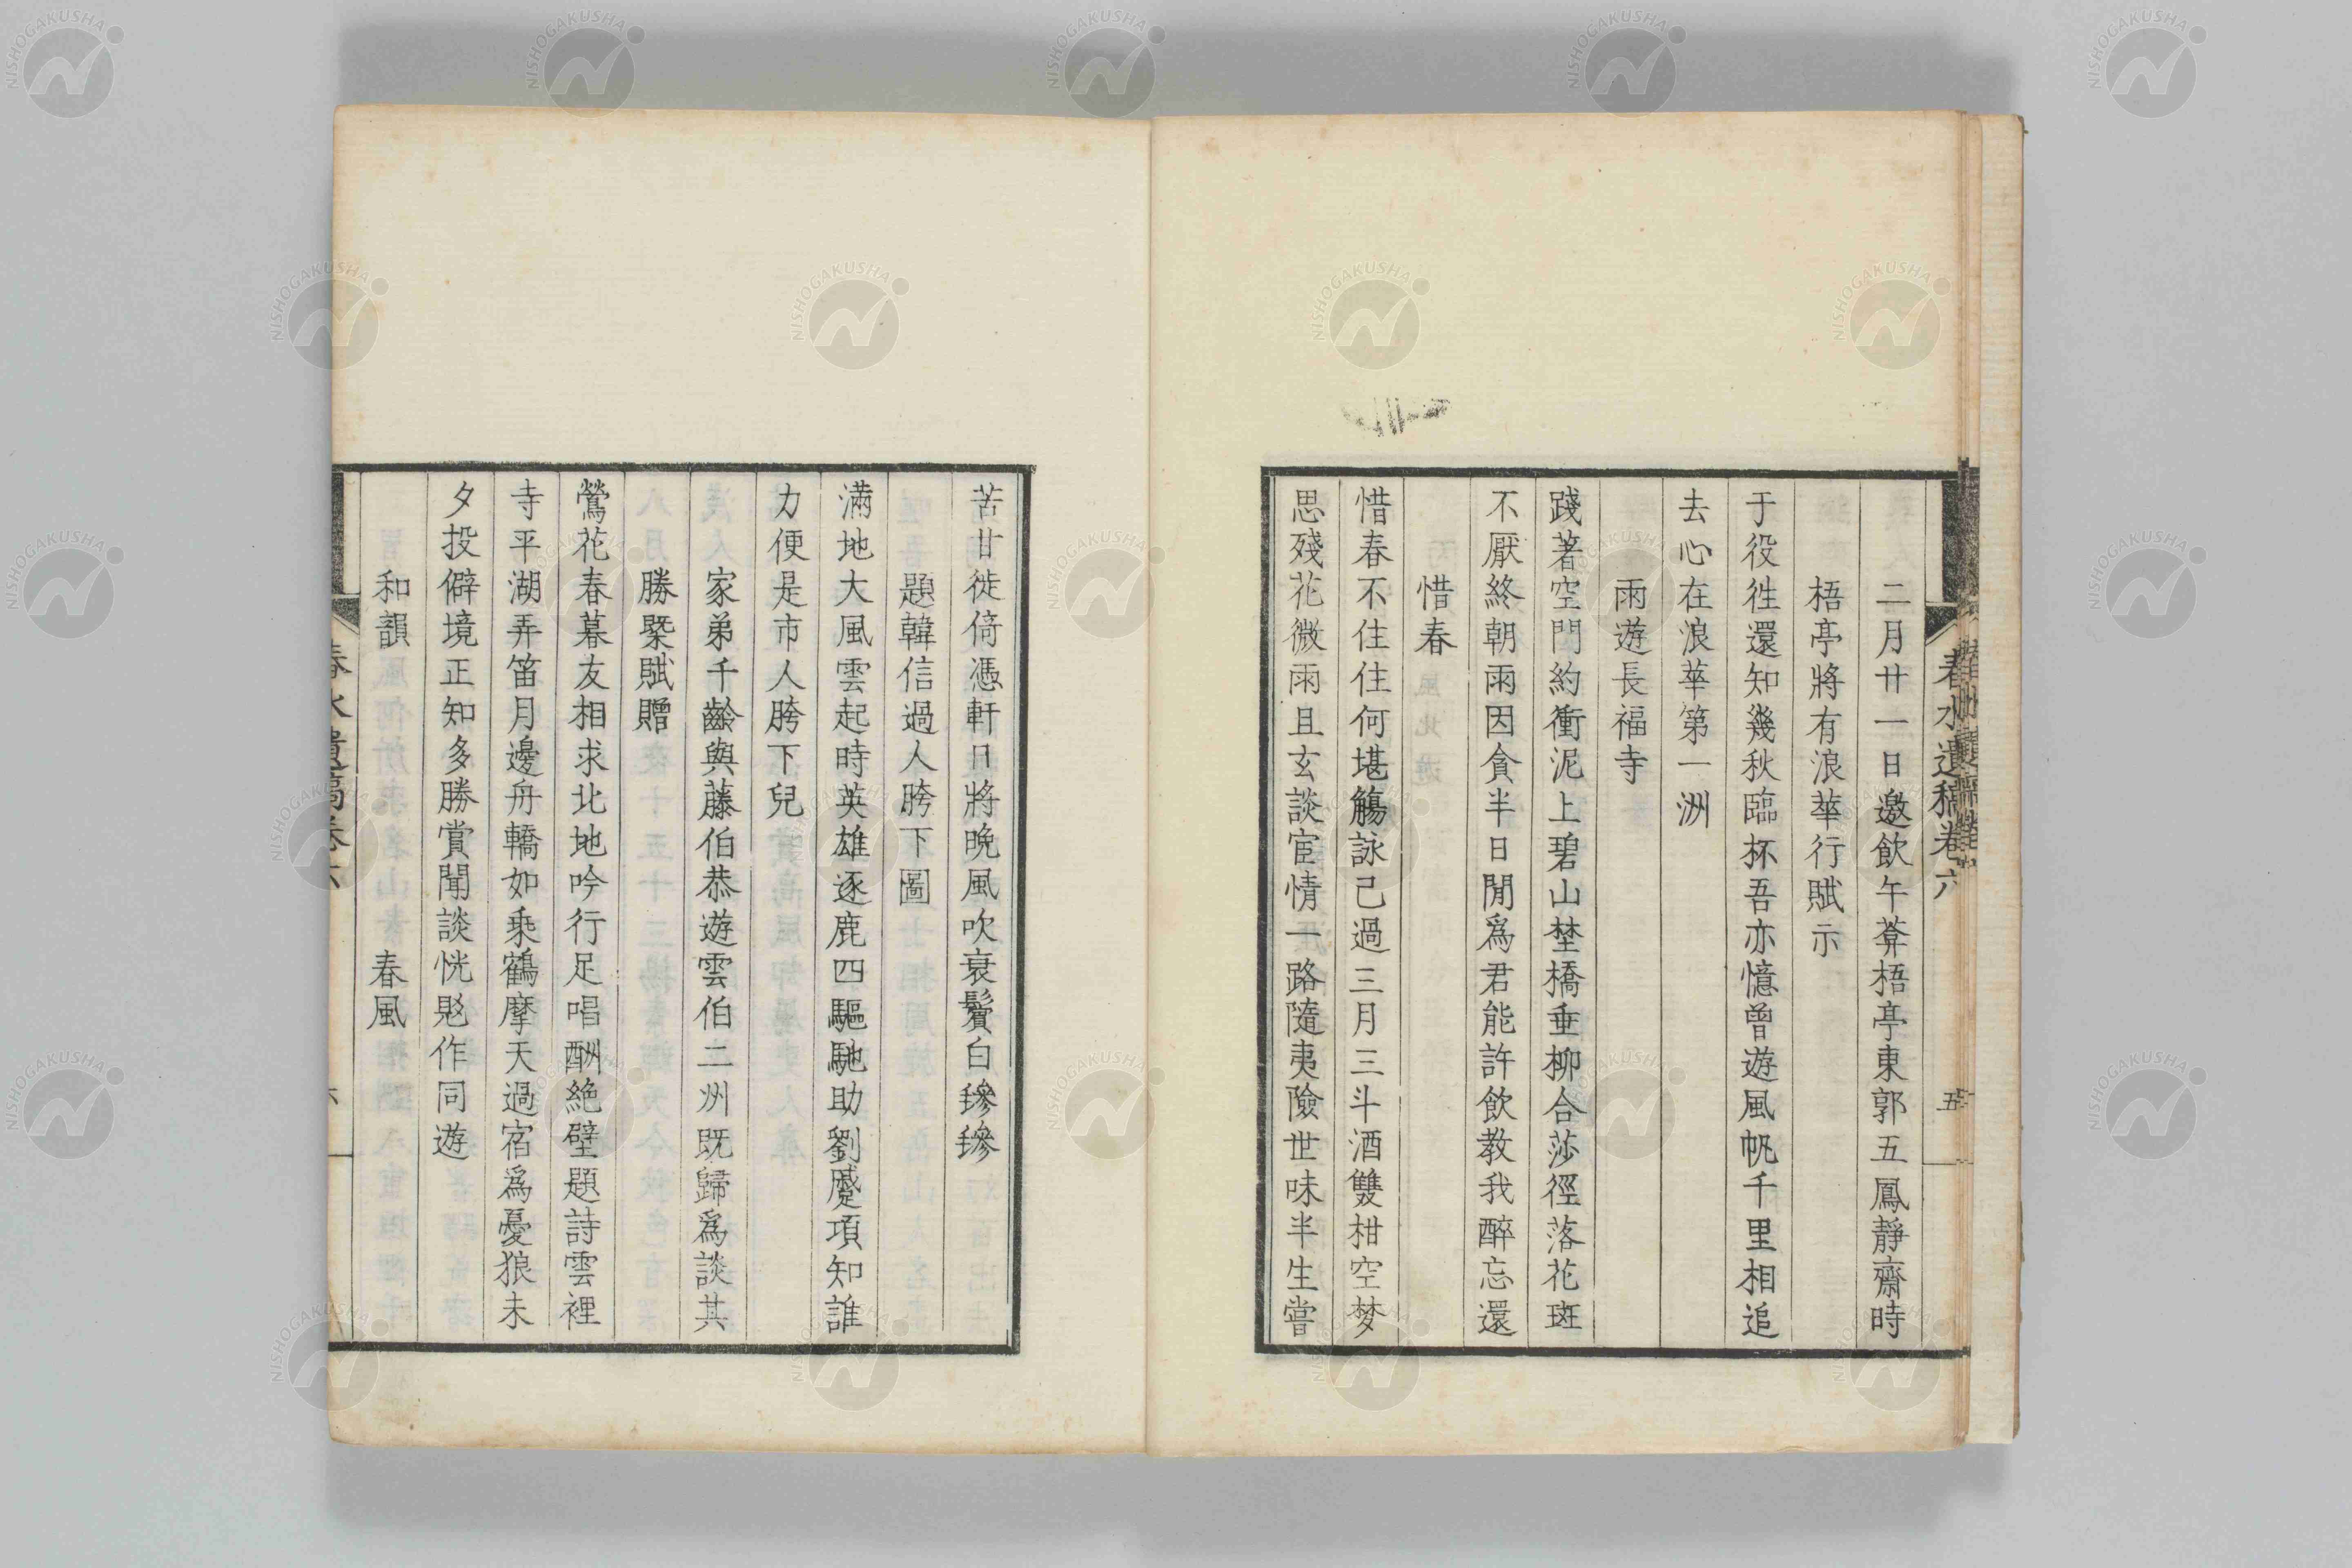 春水遺稿卷六
五
二月廿一日邀飲午葊梧亭東郭五鳳靜齋時
梧亭將有浪華行賦示
于役徃還知幾秋臨杯吾亦憶曾遊風帆千里相追
去心在浪華第一洲
雨遊長福寺
踐著空門約衝泥上碧山埜橋垂柳合莎徑落花斑
不厭終朝雨因貪半日閒爲君能許飲教我醉忘還
惜春
惜春不住住何堪觴詠已過三月三斗酒雙柑空梦
思殘花微雨且玄談宦情一路隨夷險世味半生嘗
苦甘徙倚憑軒日將晚風吹衰鬢白毿毿
題韓信過人胯下圖
滿地大風雲起時英雄逐鹿四驅馳助劉蹙項知誰
力便是市人胯下兒
家弟千齡與藤伯恭遊雲伯二州既歸爲談其
勝槩賦贈
鶯花春暮友相求北地吟行足唱酬絶壁題詩雲裡
寺平湖弄笛月邊舟轎如乘鶴摩天過宿爲憂狼未
夕投僻境正知多勝賞聞談恍兝作同遊
和韻 春風
春水遺稿卷六
NISHOGAKUSHA